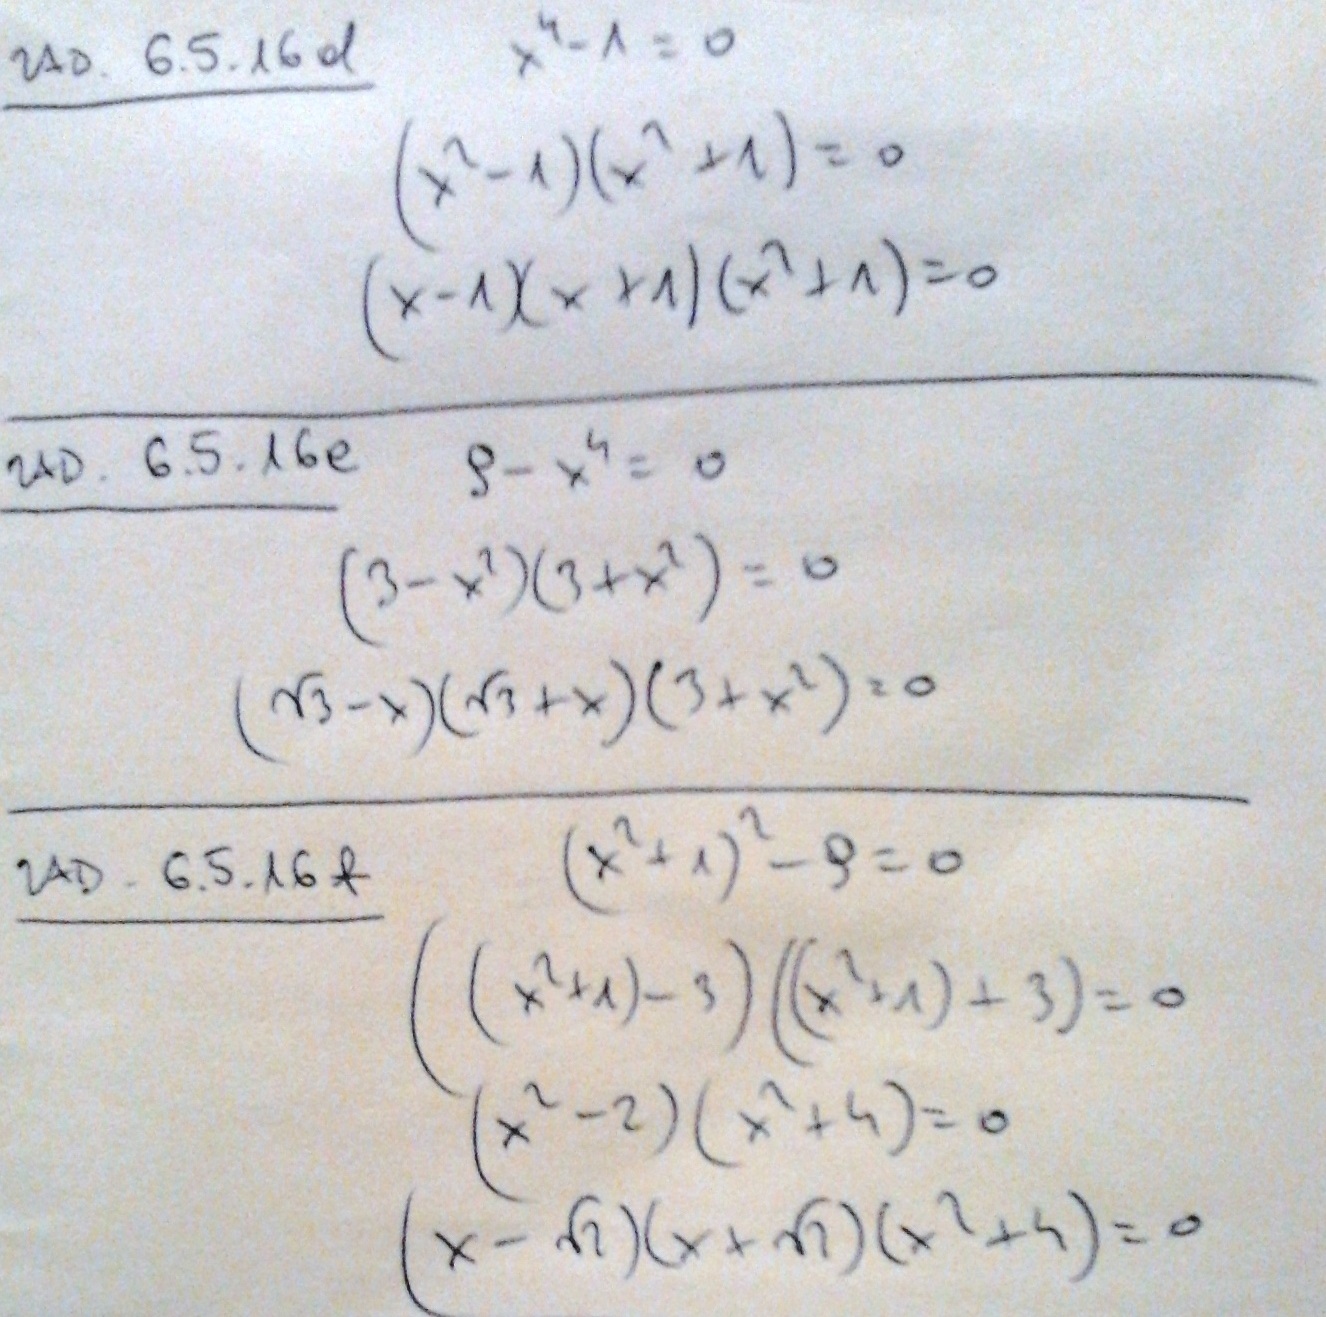 ZAD. 6.5.16d x⁴-1=0
(x²-1)(x²+1)=0
(x-1)(x+1)(x²+1)=0
ZAD. 6.5.16e 9-x⁴=0
(3-x²)(3+x²)=0
(√3-x)(√3+x)(3+x²)=0
ZAD. 6.5.16f (x²+1)²-9=0
((x²+1)-3)((x²+1)+3)=0
(x²-2)(x²+4)=0
(x-√2)(x+√2)(x²+4)=0